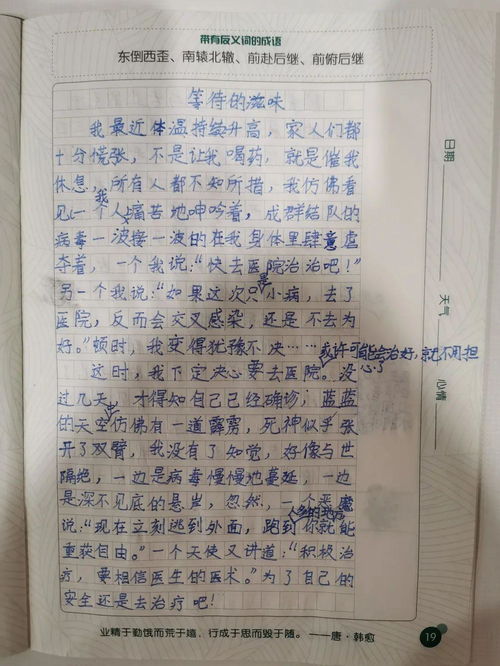 带有反义词的成语
东倒西歪、南辕北辙、前赴后继、前俯后继
等待的滋味
我最近体温持续升高，家人们都
十分慌张，不是让我喝药，就是催我
休息，所有人都不知所措，我仿佛看
见一个我人痛苦地呻吟着，成群结队的
病毒一波接一波的在我身体里肆意虐
夺着，一个我说：“快去医院治治吧！”
另一个我说：“如果这次只是小病，去了
医院，反而会交叉感染，还是不去为
好。”顿时，我变得犹豫不决……
或许可能会治好，就不用担心了
这时，我下定决心要去医院。没
过几天，才得知自己已经确诊；蓝蓝
的天空中仿佛有一道霹雳，死神似乎张
开了双臂，我没有了知觉，好像与世
隔绝，一边是病毒慢慢地蔓延，一边
是深不见底的悬崖，忽然，一个恶魔
说：“现在立刻逃到外面，跑到人多的地方你就能
重获自由。”一个天使又讲道：“积极治
疗，要相信医生的医术。”为了自己的
安全还是去治疗吧！
业精于勤饿而荒于嬉、行成于思而毁于随。——唐·韩愈
19
日期
天气
心情